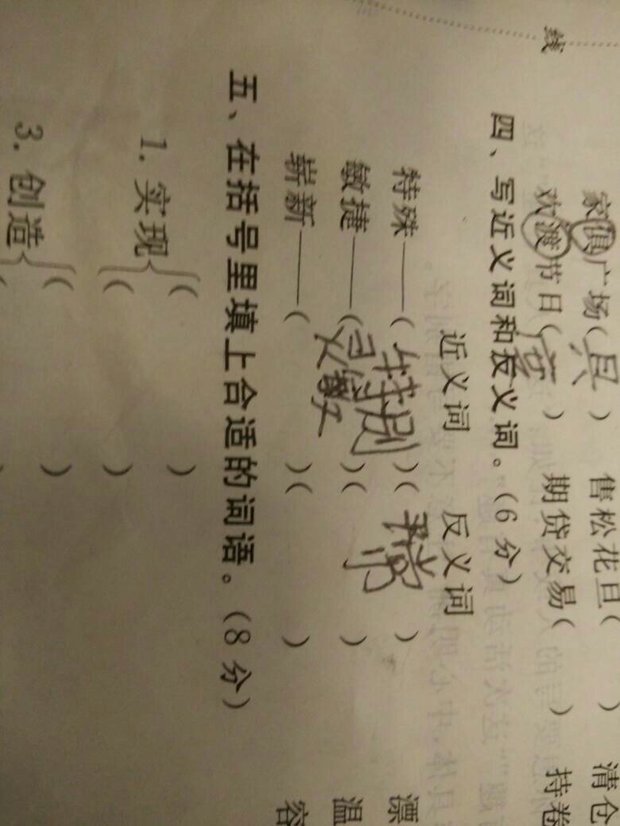 线
家俱广场(具) 售松花旦( ) 清仓
欢渡节日(度) 期贷交易( ) 持卷
四、写近义词和反义词。(6分)
近义词 反义词
特殊——(特别)(平常) 漂
敏捷——( )( ) 温
崭新——( )( ) 容
五、在括号里填上合适的词语。(8分)
1. 实现{( )
( )
3. 创造{( )
(